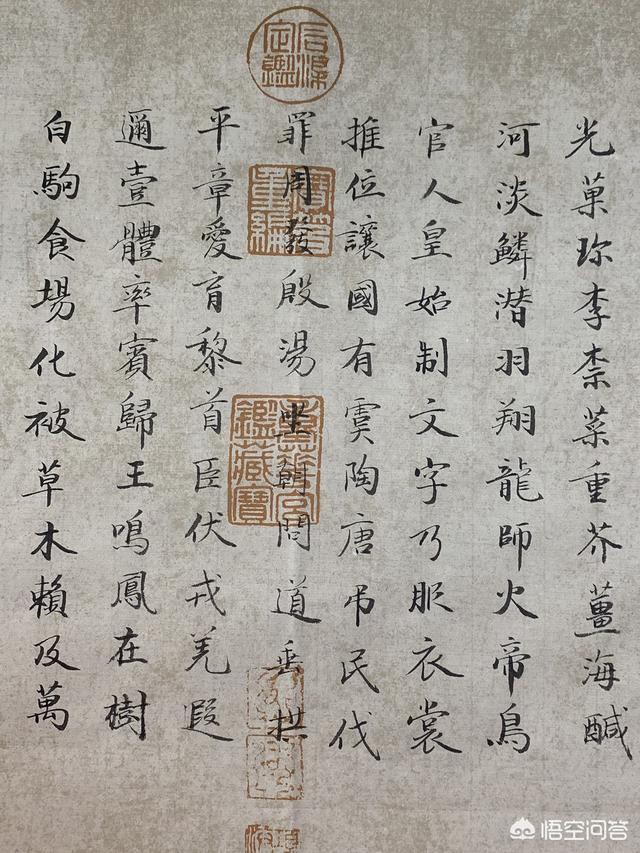 光菓珎李柰菜重芥薑海醎
河淡鱗潜羽翔龍師火帝鳥
官人皇始制文字乃服衣裳
推位讓國有虞陶唐吊民伐
罪周發殷湯坐朝問道垂拱
平章愛育黎首臣伏戎羌遐
邇壹體率賓歸王鳴鳳在樹
白駒食場化被草木賴及萬
石渠定鑑
寶笈重編
重華宮鑑藏寶
悟空问答